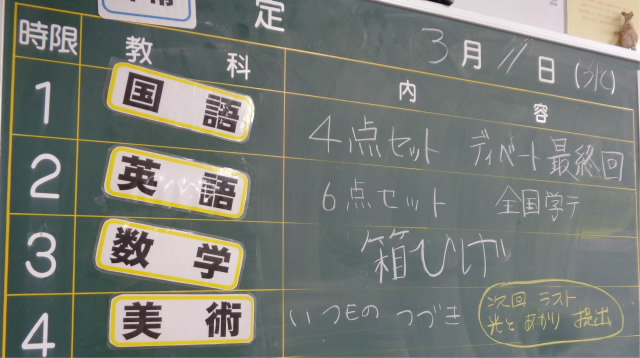 定
3月11日(水)
時限 教科 内容
1 国語 4点セット ディベート最終回
2 英語 6点セット 全国学テ
3 数学 箱ひげ
4 美術 いつもの つづき
次回 ラスト
光と あかり 提出